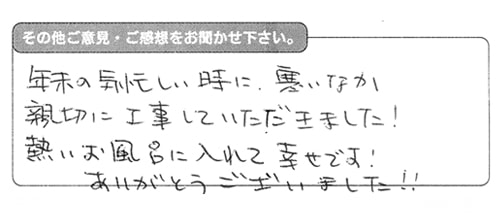 その他ご意見・ご感想をお聞かせ下さい。
年末の気忙しい時に、寒いなか
親切に工事していただきました！
熱いお風呂に入れて幸せです！
ありがとうございました!!